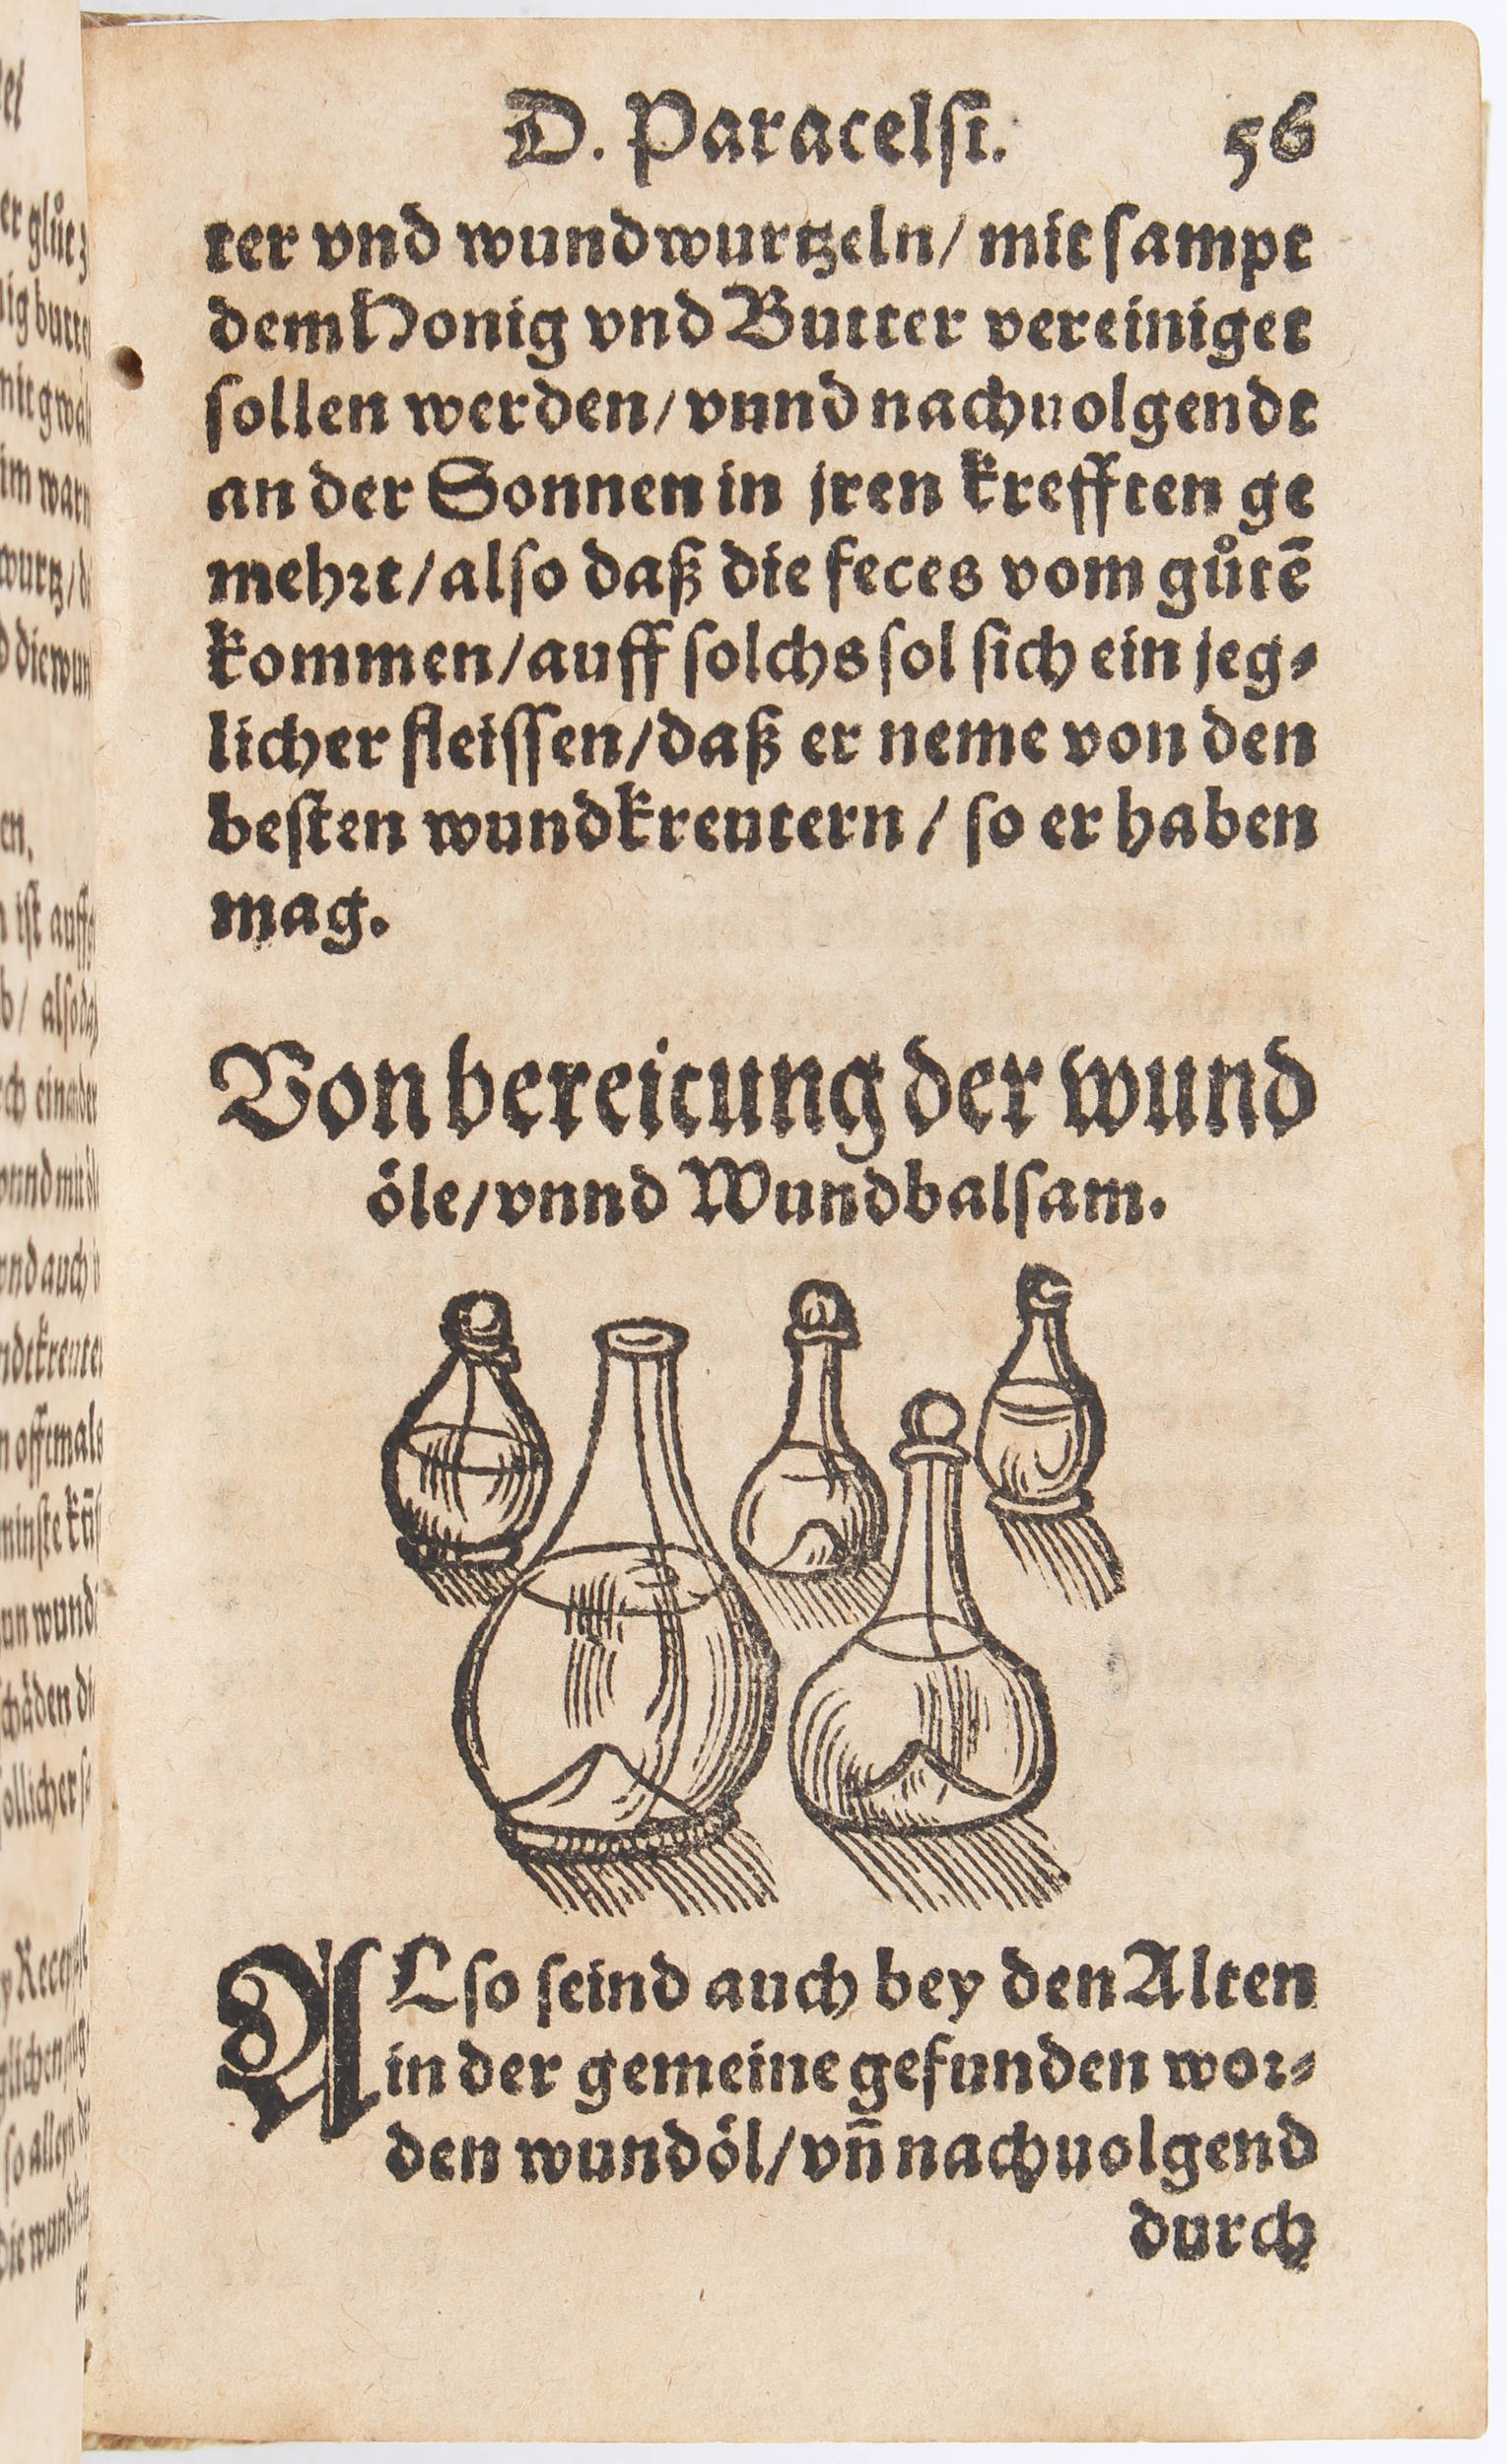 D. Paracelsi. 56
ter vnd wundwurtzeln/ mit sampt
dem Honig vnd Butter vereiniget
sollen werden/ vnnd nachuolgendt
an der Sonnen in jren krefften ge
mehrt/ also daß die feces vom gůtē
kommen/ auff solchs sol sich ein jeg⸗
licher fleissen/ daß er neme von den
besten wundkreutern/ so er haben
mag.
Von bereitung der wund
öle/ vnnd Wundbalsam.
ALso seind auch bey den Alten
in der gemeine gefunden wor⸗
den wundöl/ vn̄ nachuolgend
durch